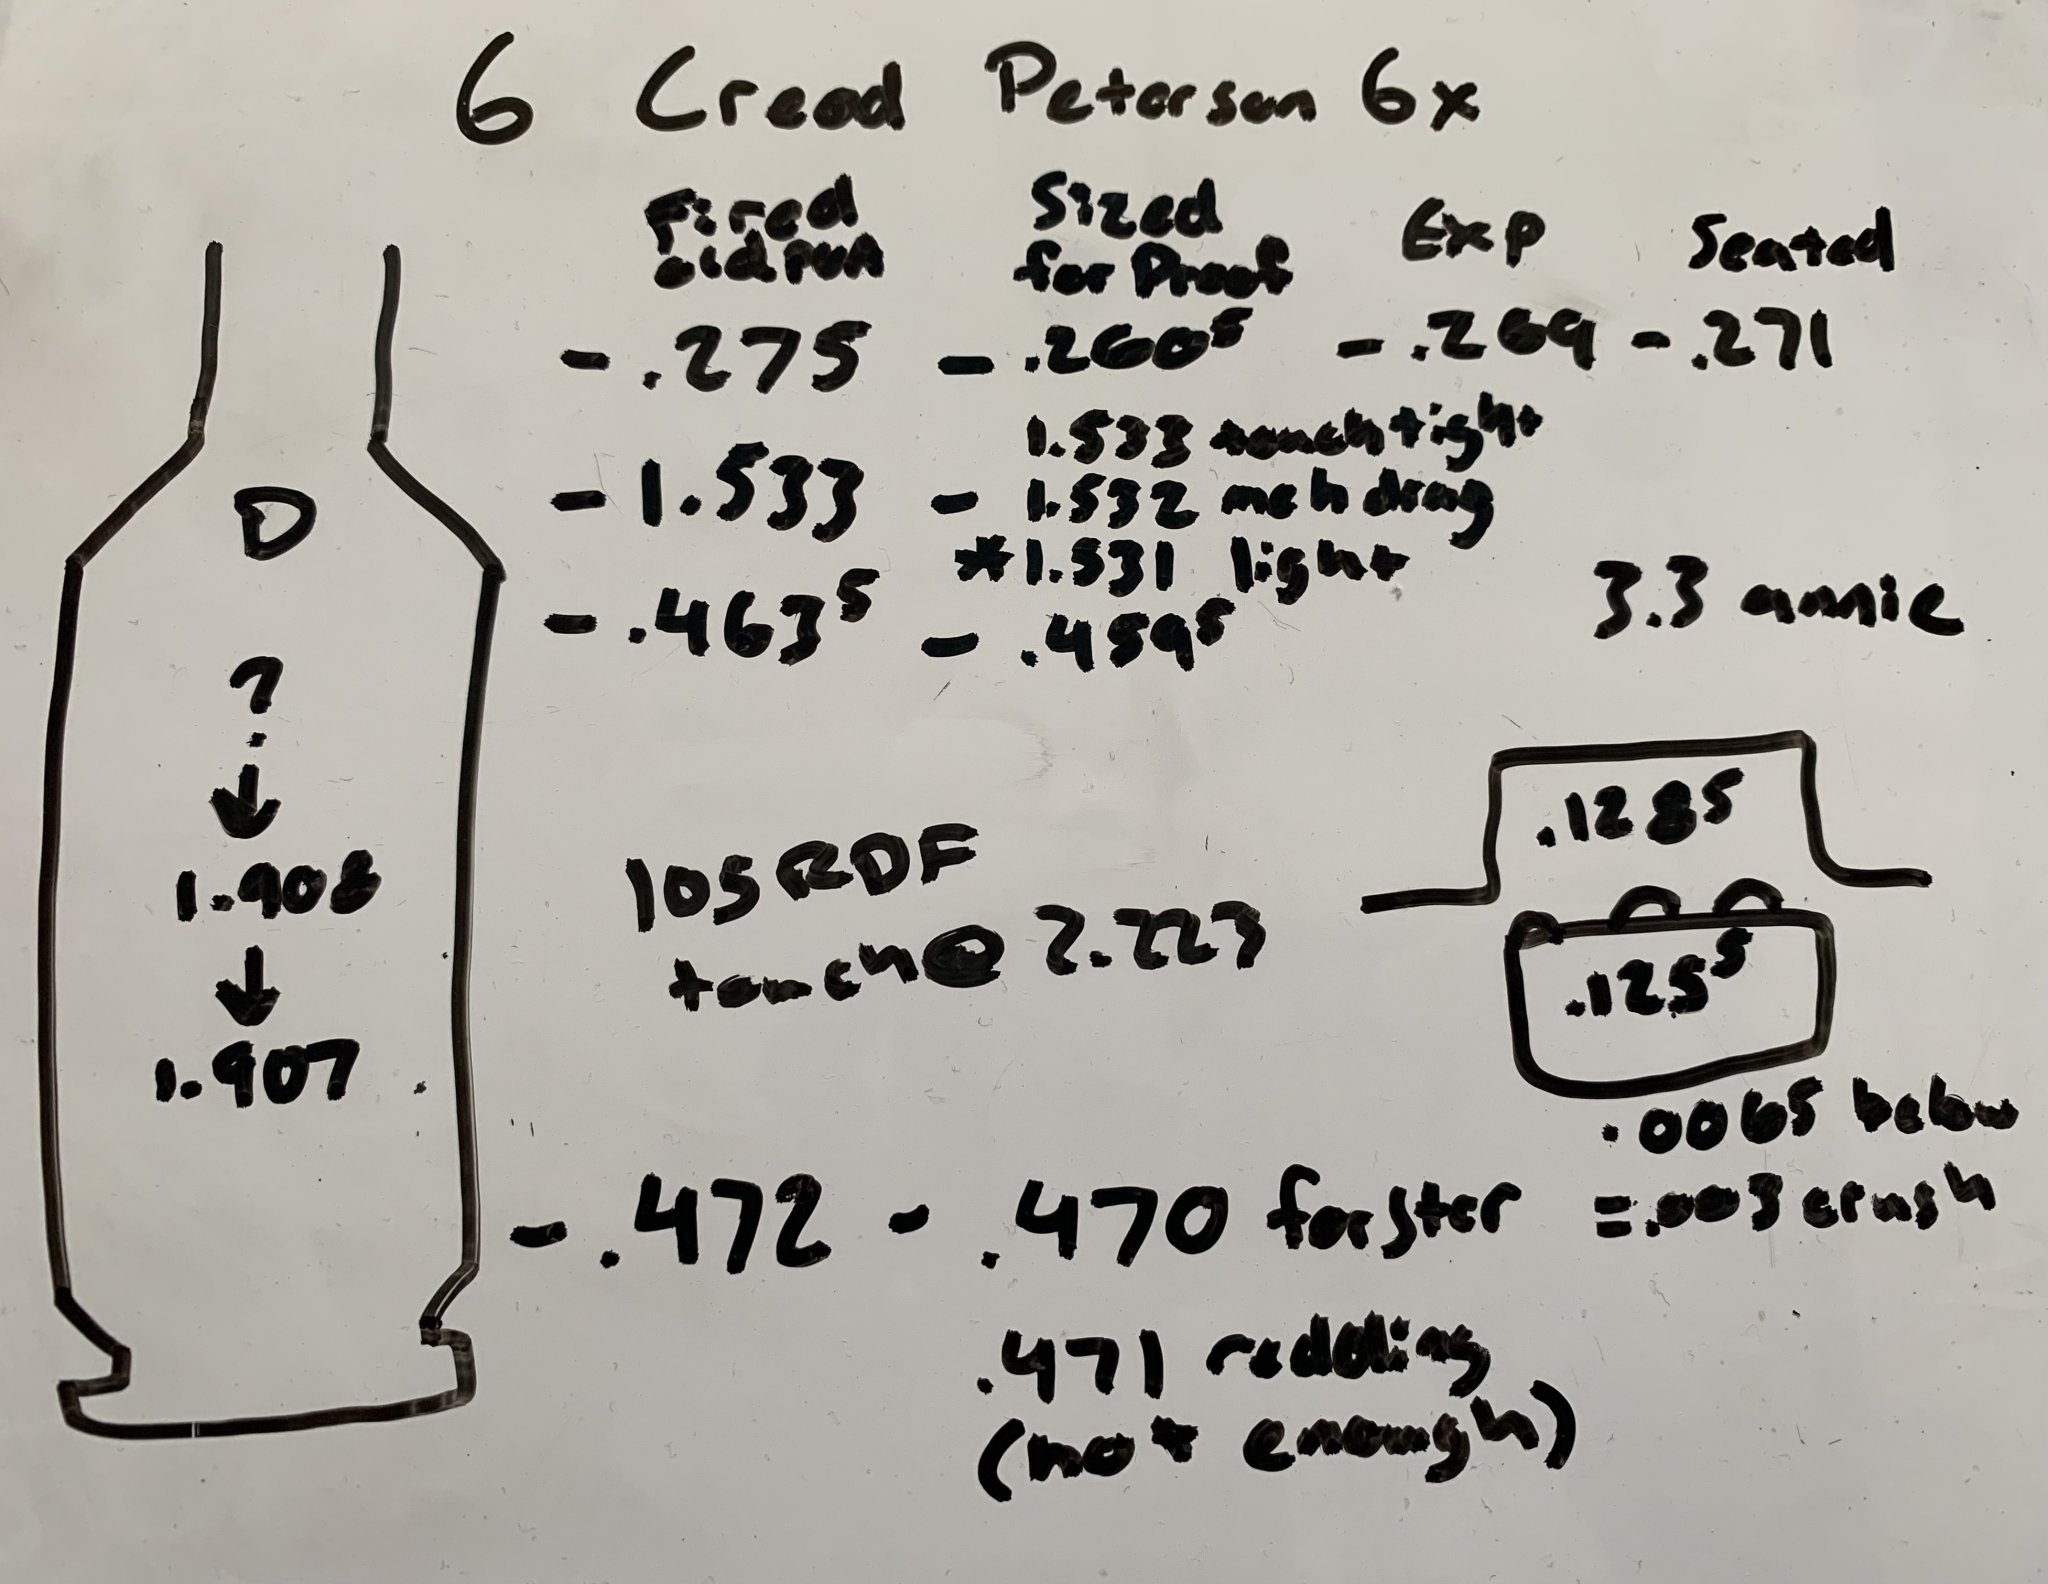 6 Creed Peterson 6x
Fired Sized Exp Seated
for Proof
- .275 - .260⁵ - .269 - .271
1.533 touch tight
- 1.533 - 1.532 meh drag
*1.531 light
- .463⁵ - .459⁵
3.3 annie
D
?
↓
1.908
↓
1.907
105 RDF
touch @ 2.223
.1285
.125⁵
.0065 below
=.003 crush
- .472 - .470 forster
.471 redding
(not enough)